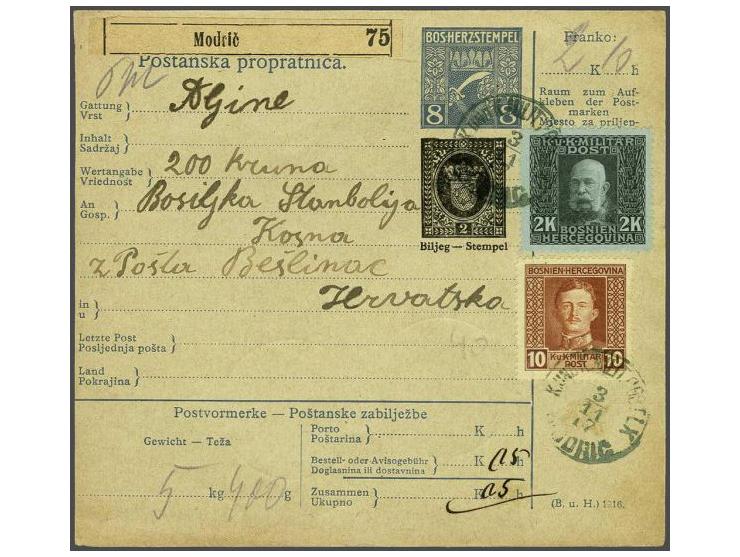 Modrič 75
BOS·HERZ·STEMPEL
8 8
Franko:
2 K 10 h
Poštanska propratnica.
Raum zum Auf-
kleben der Post-
marken
Mjesto za priljep-
Gattung
Vrst
Inhalt
Sadržaj
Wertangabe
Vriednost
200 kruna
An
Gosp.
Bosiljka Stanbolija
Kosna
z Pošta Bešlinac
Hrvatska
2
Biljeg — Stempel
K.u.K. MILITÄR
POST
2K 2K
BOSNIEN
HERCEGOVINA
BOSNIEN-HERCEGOVINA
10 10
K.u.K. MILITÄR
POST
3
11
17
MODRIČ
in
u
Letzte Post
Posljednja pošta
Land
Pokrajina
Postvormerke — Poštanske zabilježbe
Gewicht — Teža
5 kg 400 g
Porto
Poštarina K h
Bestell- oder Avisogebühr
Doglasnina ili dostavnina K 15 h
Zusammen
Ukupno K 15 h
(B. u. H.) 1916.